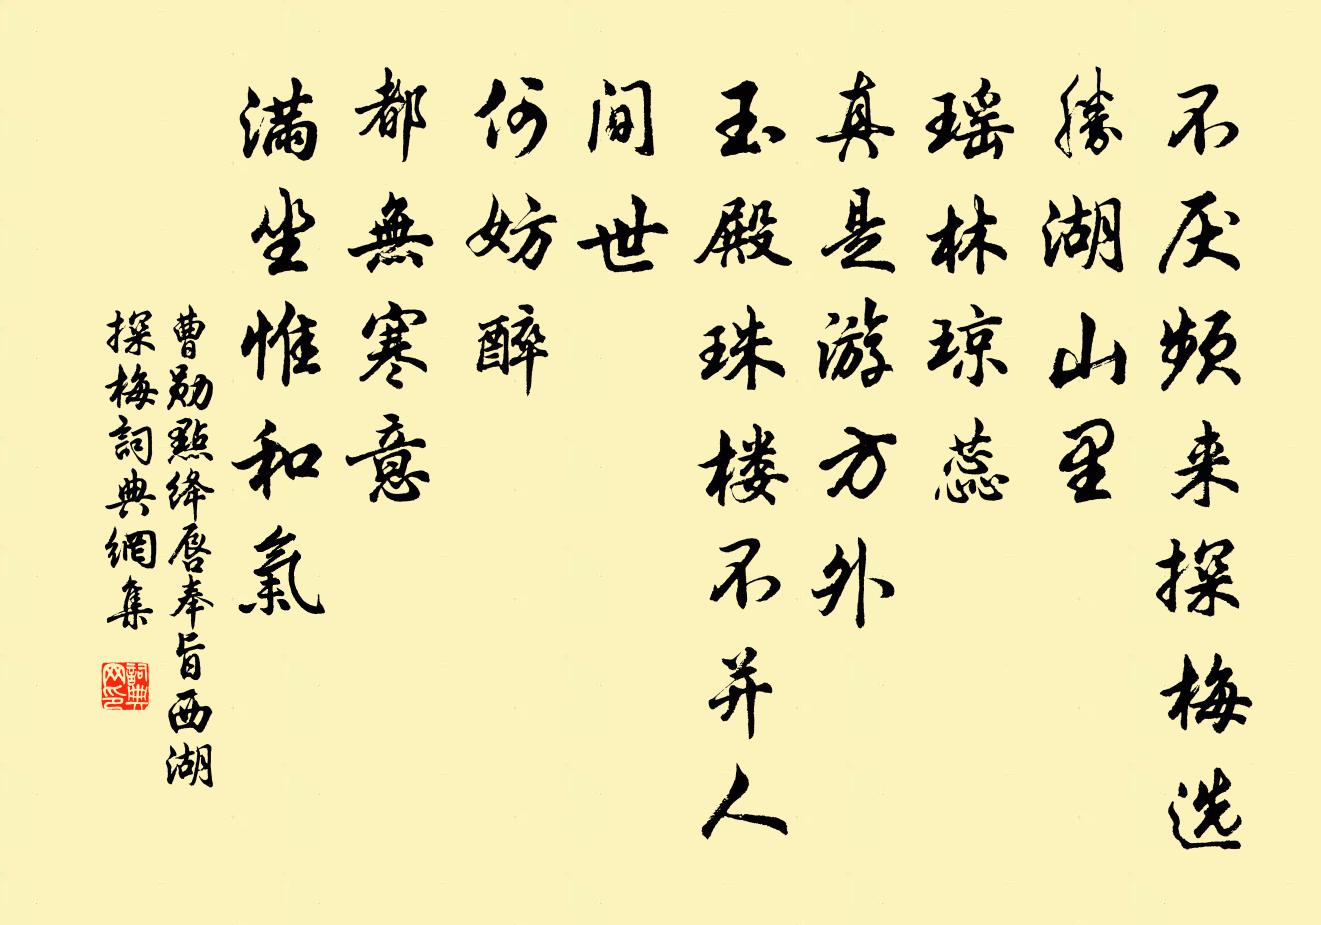 不厌频来探梅选
勝湖山里
瑶林琼蕊
真是游方外
玉殿珠楼不并人
间世
何妨醉
都無寒意
满坐惟和氣
曹勋點绛唇奉旨西湖
探梅詞典網集
詞典网印